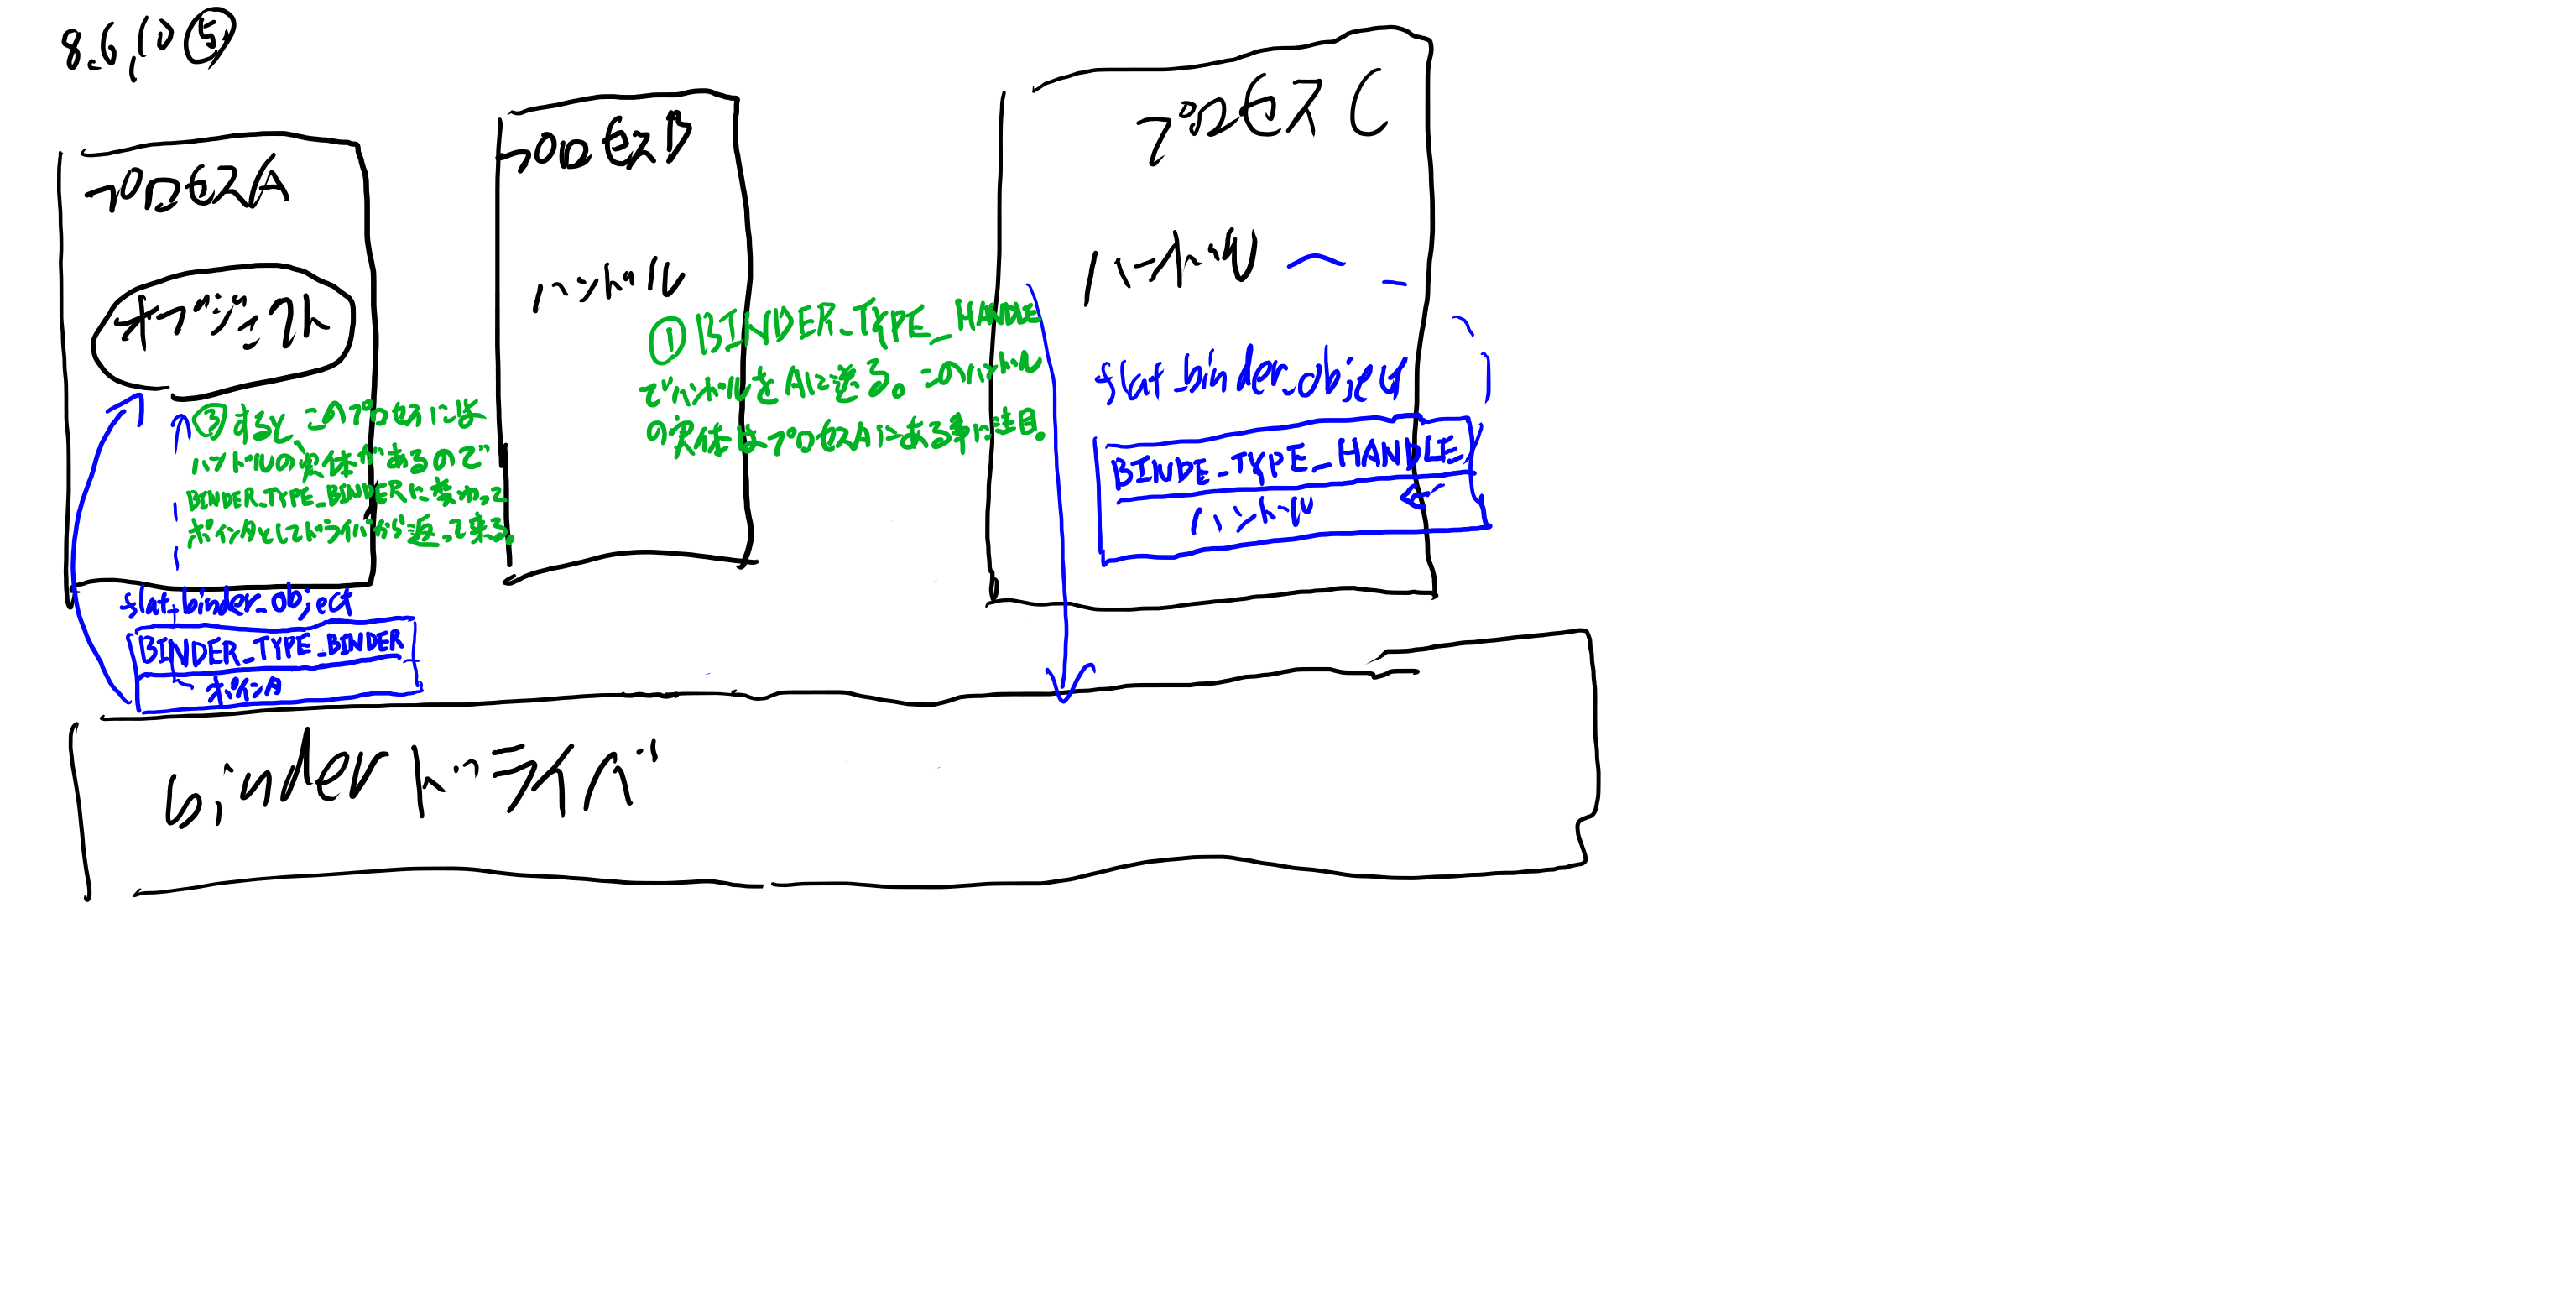 8.6.10 ⑤
プロセスA
オブジェクト
③すると、このプロセスには
ハンドルの実体があるので
BINDER_TYPE_BINDERに変わって
ポインタとしてドライバから返って来る。
flat_binder_object
BINDER_TYPE_BINDER
ポインタ
プロセスB
ハンドル
①BINDER_TYPE_HANDLE
でハンドルをAに送る。このハンドル
の実体はプロセスAにある事に注目。
プロセスC
ハンドル
flat_binder_object
BINDE_TYPE_HANDLE
ハンドル
binderドライバ